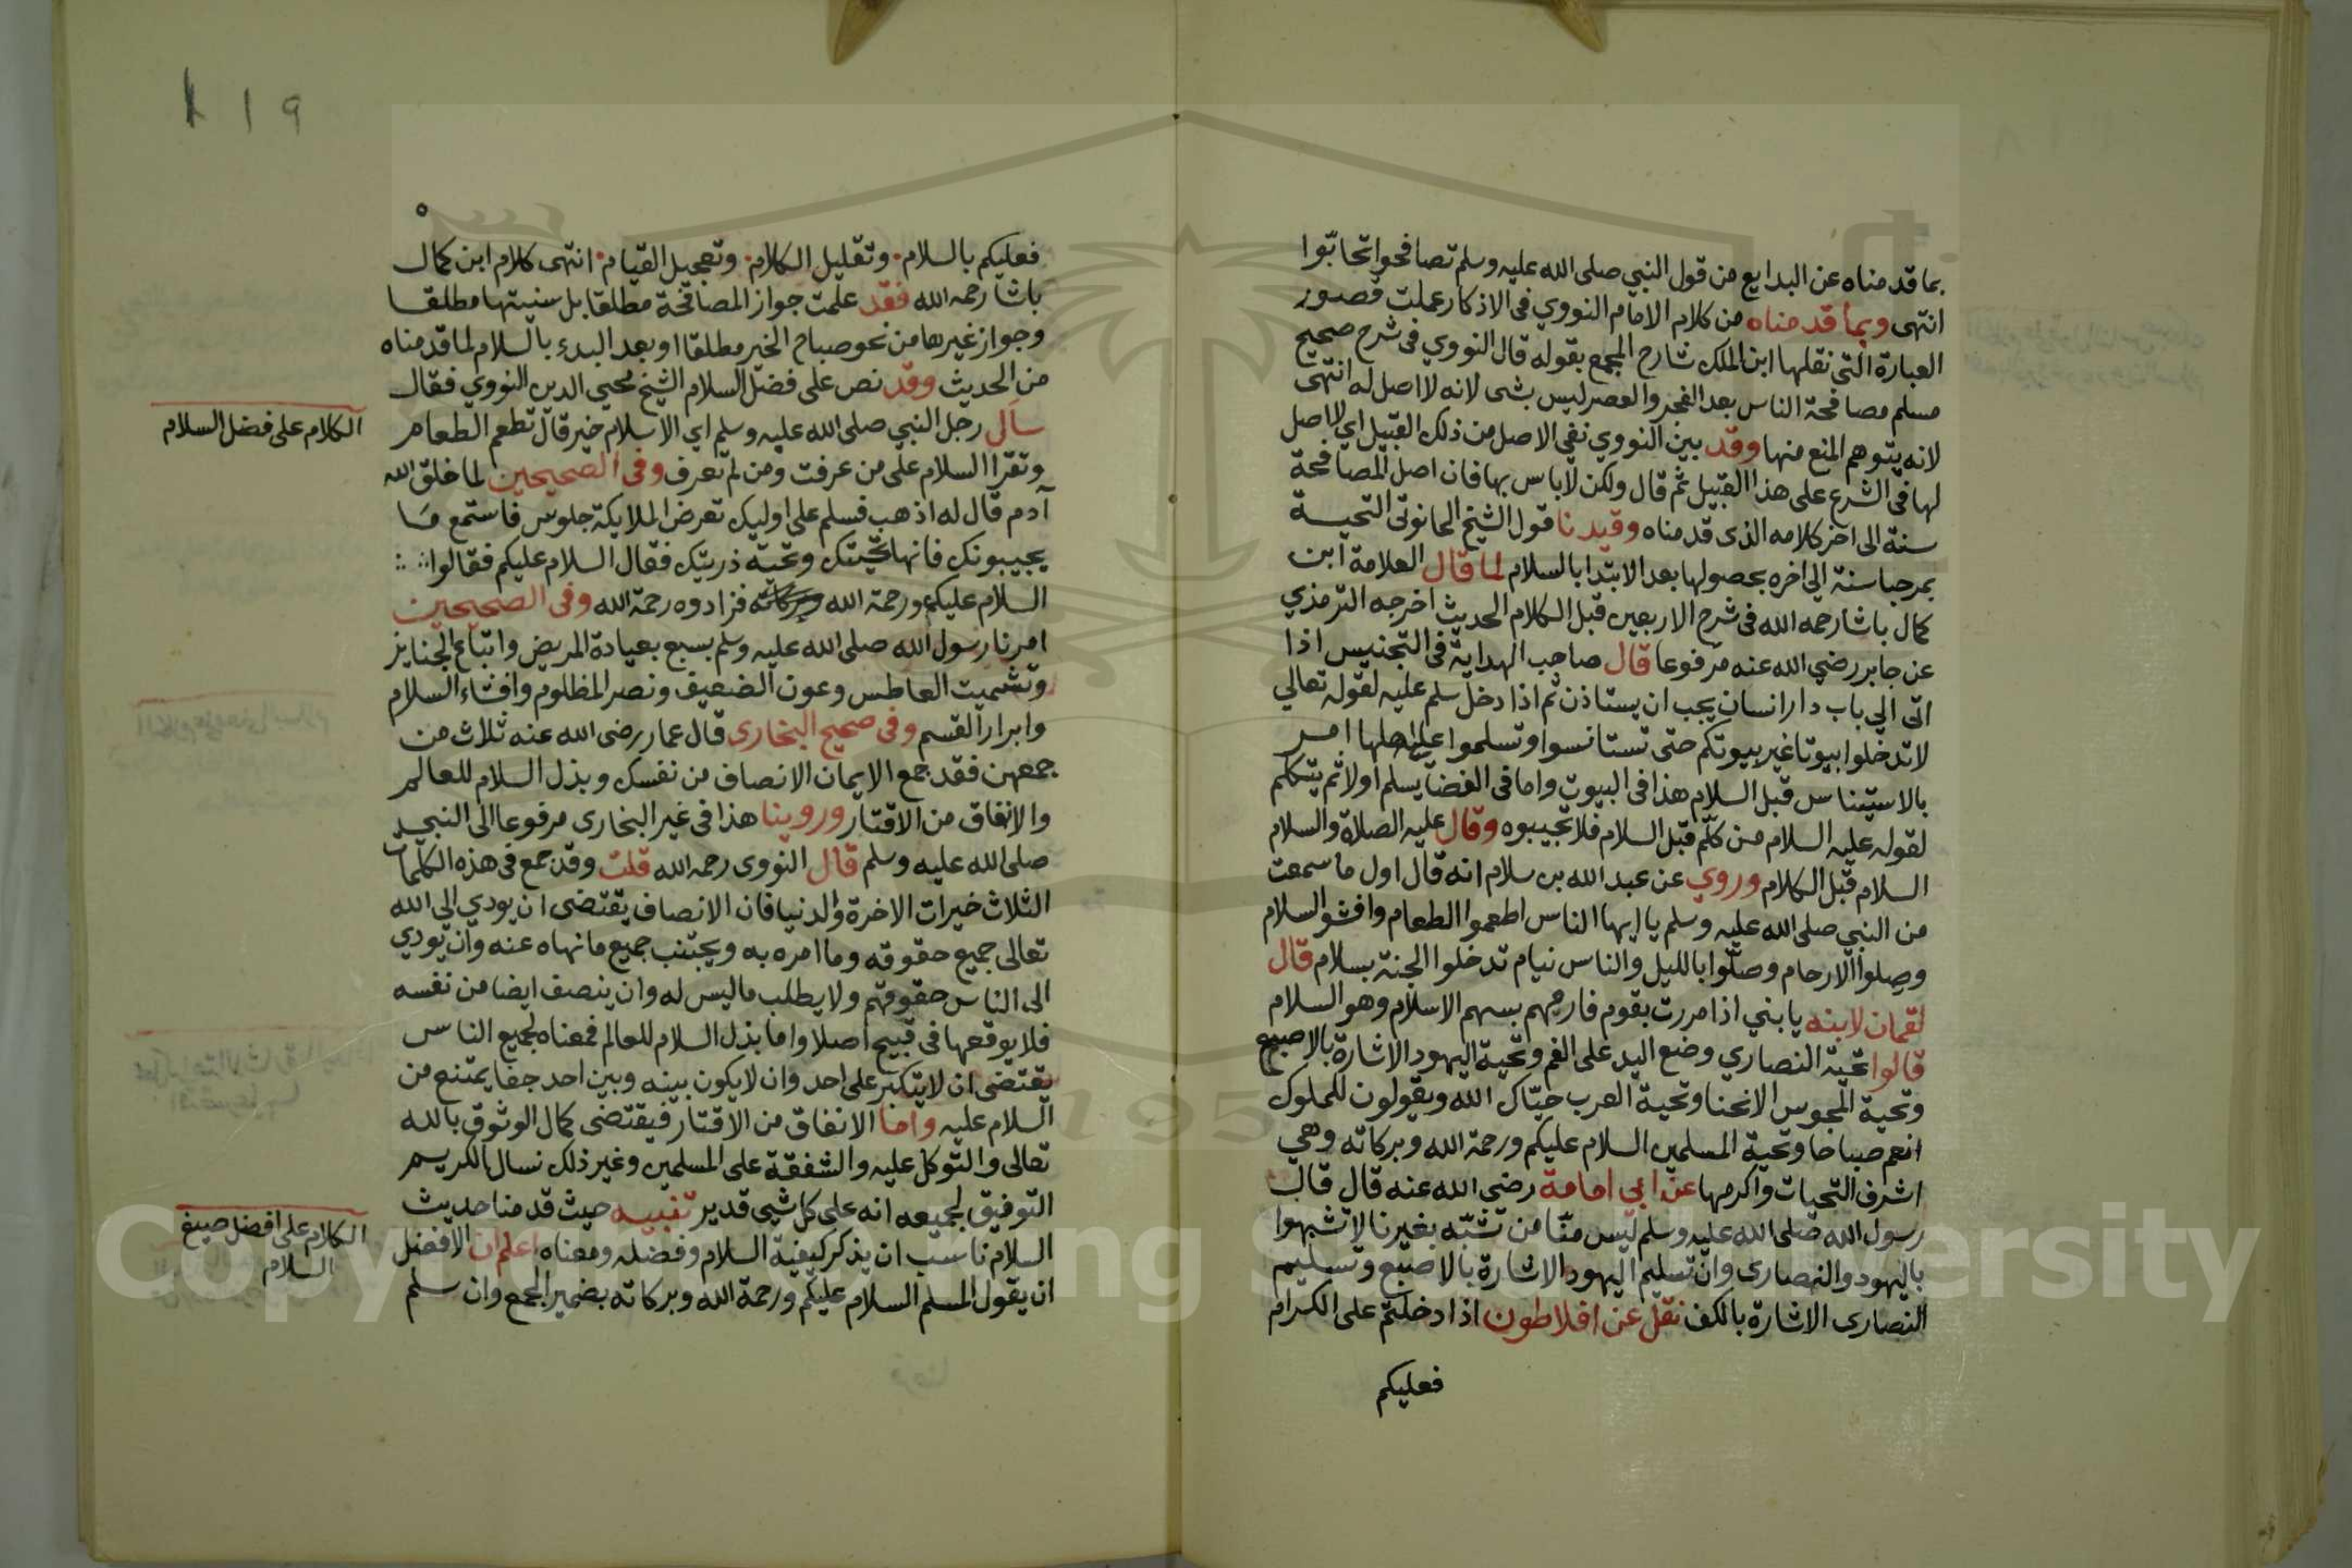 بما قدمناه عن البدايع من قول النبي صلى الله عليه وسلم تصافحوا تحابّوا
انتهى وبما قدمناه من كلام الامام النووي في الاذكار عملت قصور
العبارة التي نقلها ابن الملك شارح المجمع بقوله قال النووي في شرح صحيح
مسلم مصافحة الناس بعد الفجر والعصر ليس بشى لانه لا اصل له انتهى
لانه يتوهم المنع منها وقد بين النووي نفي الاصل من ذلك القبيل اي لا اصل
لها في الشرع على هذا القبيل ثم قال ولكن لاباس بها فان اصل المصافحة
سنة الى اخر كلامه الذى قدمناه وقيدنا قول الشيخ الحانوتي التحيــة
بمرحبا سنة الي اخره بحصولها بعد الابتدا بالسلام لما قال العلامة ابن
كمال باشا رحمه الله في شرح الاربعين قبل الكلام الحديث اخرجه الترمذي
عن جابر رضي الله عنه مرفوعا قال صاحب الهداية في التجنيس اذا
اتى الي باب دار انسان يجب ان يستاذن ثم اذا دخل سلم عليه لقوله تعالي
لا تدخلوا بيوتا غير بيوتكم حتى تستانسوا وتسلموا على اهلها امر
بالاستيناس قبل السلام هذا في البيوت واما في الفضا يسلم اولا ثم يتكلم
لقوله عليه السلام من كلّم قبل السلام فلا تجيبوه وقال عليه الصلاة والسلام
السلام قبل الكلام وروي عن عبد الله بن سلام انه قال اول ما سمعت
من النبي صلى الله عليه وسلم يا ايها الناس اطعموا الطعام وافشوا السلام
وصلوا الارحام وصلّوا بالليل والناس نيام تدخلوا الجنة بسلام قال
لقمان لابنه يا بني اذا مررت بقوم فارمهم بسهم الاسلام وهو السلام
قالوا تحية النصاري وضع اليد على الفم وتحية اليهود الاشارة بالاصبع
وتحية المجوس الانحنا وتحية العرب حيّاك الله ويقولون للملوك
انعم صباحا وتحية المسلمين السلام عليكم ورحمة الله وبركاته وهي
اشرف التحيات واكرمها عن ابي امامة رضي الله عنه قال قال
رسول الله صلى الله عليه وسلم ليس منّا من تشبّه بغيرنا لا تشبهوا
باليهود والنصارى وان تسليم اليهود الاشارة بالاصبع وتسليم
النصارى الاشارة بالكف نقل عن افلاطون اذا دخلتم على الكرام
فعليكم
١١٩
فعليكم بالسلام. وتقليل الكلام. وتعجيل القيام. انتهى كلام ابن كمال
باشا رحمه الله فقد علمت جواز المصافحة مطلقا بل سنيتها مطلقـا
وجواز غيرها من نحو صباح الخير مطلقا او بعد البدء بالسلام لما قدمناه
من الحديث وقد نص على فضل السلام الشيخ محيي الدين النووي فقال
سأل رجل النبي صلى الله عليه وسلم اي الاسلام خير قال تطعم الطعام
وتقرا السلام على من عرفت ومن لم تعرف وفي الصحيحين لما خلق الله
آدم قال له اذهب فسلم على اوليك تعرض الملايكة جلوس فاستمع مَا
يجيبونك فانها تحيّتك وتحية ذريتك فقال السلام عليكم فقالوا
السلام عليكم ورحمة الله وبركاته فزادوه رحمة الله وفي الصحيحين
امرنا رسول الله صلى الله عليه وسلم بسبع بعيادة المريض واتباع الجنايز
وتشميت العاطس وعون الضعيف ونصر المظلوم وافشاء السلام
وابرار القسم وفي صحيح البخارى قال عمار رضى الله عنه ثلاث من
جمعهن فقد جمع الايمان الانصاف من نفسك وبذل السلام للعالم
والانفاق من الاقتار وروينا هذا في غير البخارى مرفوعا الى النبي
صلى الله عليه وسلم قال النووى رحمه الله قلت وقد جمع في هذه الكلمات
الثلاث خيرات الاخرة والدنيا فان الانصاف يقتضى ان يودي الي الله
تعالى جميع حقوقه وما امره به ويجتنب جميع ما نهاه عنه وان يودي
الى الناس حقوقهم ولا يطلب ما ليس له وان ينصف ايضا من نفسه
فلا يوقعها في قبيح اصلا واما بذل السلام للعالم فمعناه لجميع الناس
يقتضى ان لا يتكبر على احد وان لا يكون بينه وبين احد جفا يمتنع من
السلام عليه واما الانفاق من الاقتار فيقتضى كمال الوثوق بالله
تعالى والتوكل عليه والشفقة على المسلمين وغير ذلك نسال الكريم
التوفيق لجميعه انه على كل شيى قدير تنبيه حيث قدمنا حديث
السلام ناسب ان يذكر كيفية السلام وفضله ومعناه اعلم ان الافضل
ان يقول المسلم السلام عليكم ورحمة الله وبركاته بضمير الجمع وان سلم
الكلام على فضل السلام
الكلام على افضل صيغ
السلام
Copyright King Saud University
195